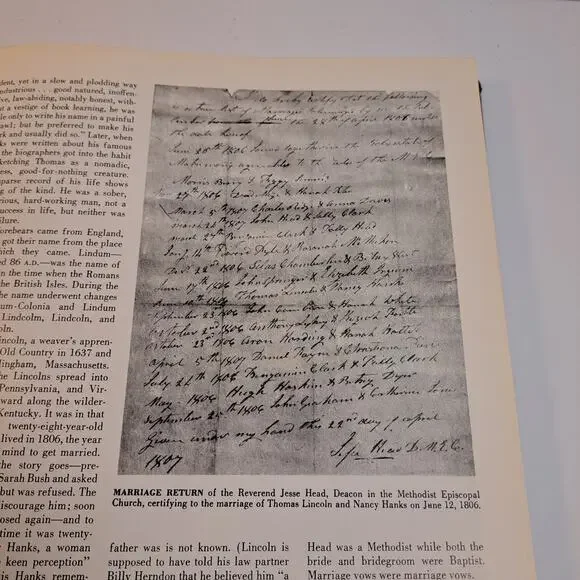 dent, yet in a slow and plodding way
ndustrious . . . good natured, inoffen-
ive, law-abiding, notably honest, with-
ut a vestige of book learning, he was
le only to write his name in a painful
rawl; but he preferred to make his
rk and usually did so." Later, when
ks were written about his famous
the biographers got into the habit
ketching Thomas as a nomadic,
ess, good-for-nothing creature.
sparse record of his life shows
g of the kind. He was a sober,
rious, hard-working man, not a
uccess in life, but neither was
ilure.
orebears came from England,
got their name from the place
ich they came. Lindum—
ed 86 A.D.—was the name of
in the time when the Romans
he British Isles. During the
he name underwent changes
um-Colonia and Lindum
Lindcolm, Lindcoln, and
oln.
ncoln, a weaver's appren-
Old Country in 1637 and
lingham, Massachusetts.
he Lincolns spread into
Pennsylvania, and Vir-
ward along the wilder-
Kentucky. It was in that
twenty-eight-year-old
lived in 1806, the year
mind to get married.
the story goes—pre-
Sarah Bush and asked
but was refused. The
iscourage him; soon
osed again—and to
time it was twenty-
Hanks, a woman
keen perception"
is Hanks remem-
do hereby certify that the following
is a true list of Marriages
the date hereof
June 26th 1806 Joined together in the
Matrimony agreeable to the rules of the M. E. C.
Morris Berry & Peggy
27th 1806 David
March 5th 1807 Charles & Anna
March 24th 1807 John Head & Sally Clark
March 27th Benjamin Clark & Dolly Head
Jany 14th Edward Pyle & Rosanah McMahon
Decr 22nd 1806 Silas Chamberlin & Betsey West
June 17th 1806 John Springer & Elizabeth Ingram
June 12th 1806 Thomas Lincoln & Nancy Hanks
September 23 1806 John & Hannah White
October 2nd 1806 Anthony & Keziah
October 23rd 1806 Aron Harding & Hannah
April 5th 1807 Daniel Payne & Christiana
July 24th 1806 Benjamin Clark & Dolly Clark
May 1806 Hugh Haskins & Betsy Dyer
September 25th 1806 John Graham & Catherine
Given under my hand this 22nd day of April
1807
Jesse Head D. M. E. C.
MARRIAGE RETURN of the Reverend Jesse Head, Deacon in the Methodist Episcopal
Church, certifying to the marriage of Thomas Lincoln and Nancy Hanks on June 12, 1806.
father was not known. (Lincoln is
supposed to have told his law partner
Billy Herndon that he believed him "a
Head was a Methodist while both the
bride and bridegroom were Baptist.
Marriage vows were marriage vows.